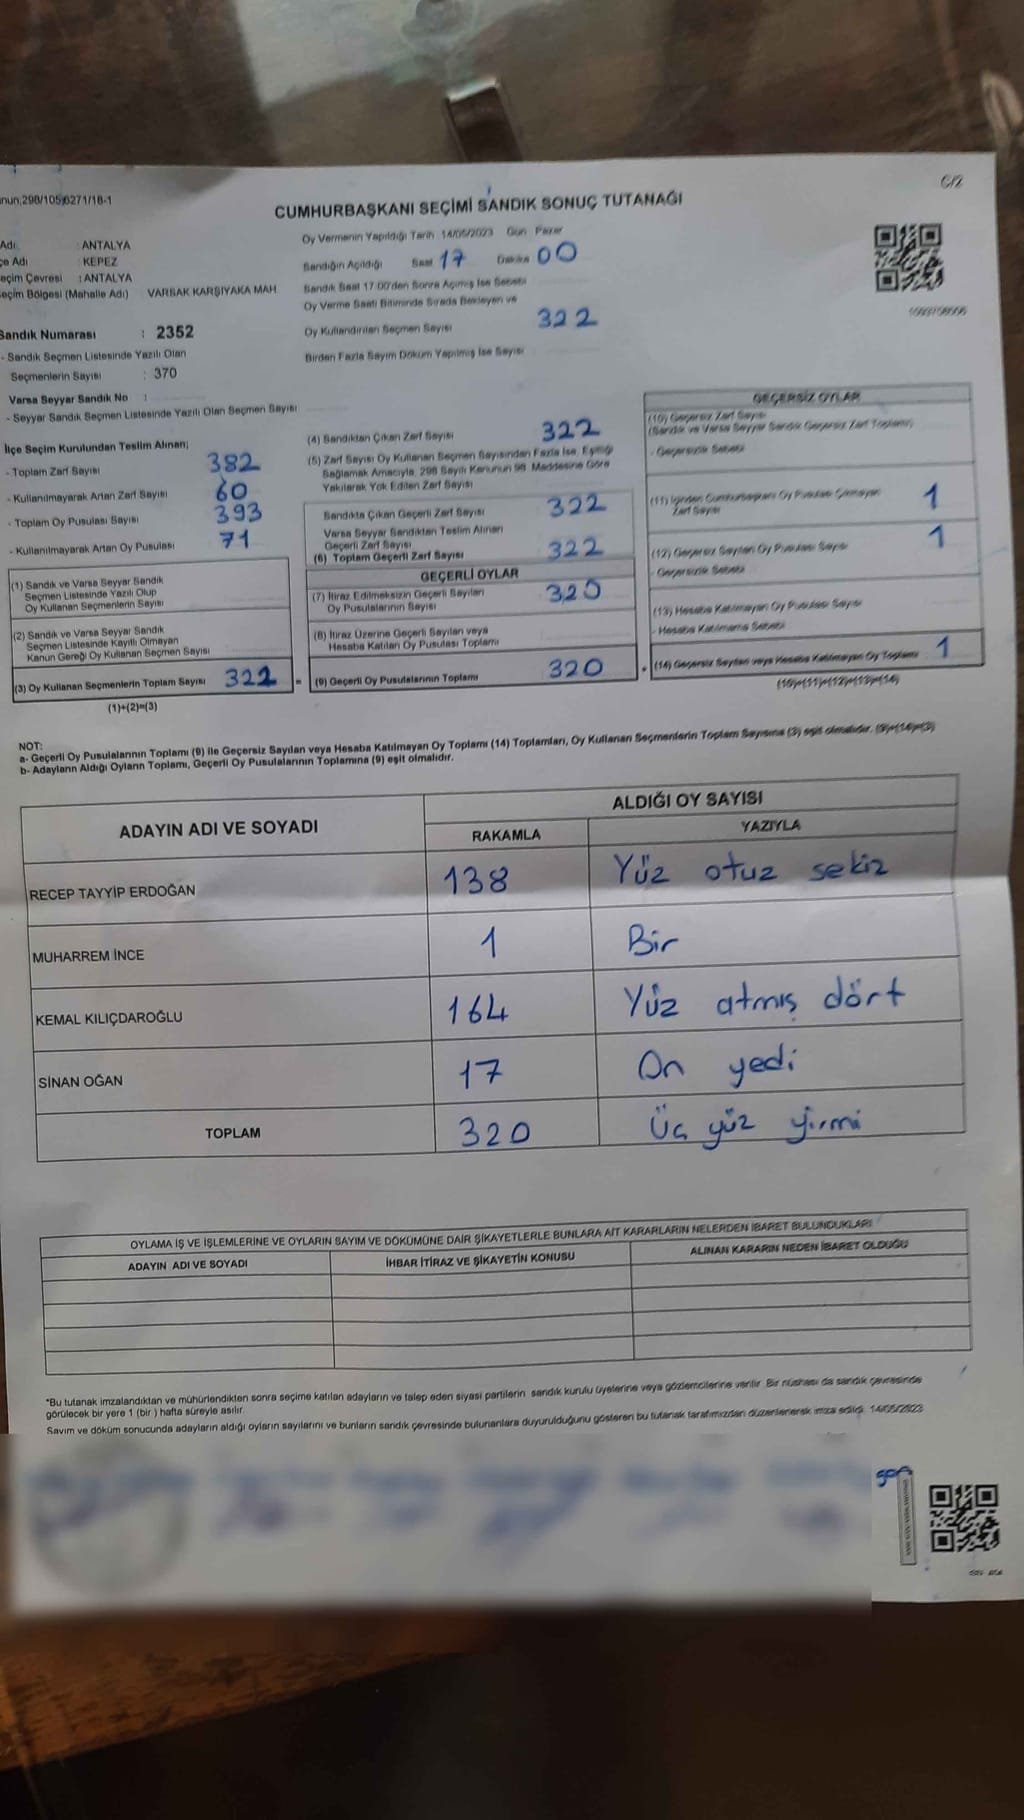 nun;298/105;6271/18-1
C/2
CUMHURBAŞKANI SEÇİMİ SANDIK SONUÇ TUTANAĞI
Adı : ANTALYA
çe Adı : KEPEZ
eçim Çevresi : ANTALYA
eçim Bölgesi (Mahalle Adı) VARSAK KARŞIYAKA MAH
Sandık Numarası : 2352
- Sandık Seçmen Listesinde Yazılı Olan
Seçmenlerin Sayısı : 370
Varsa Seyyar Sandık No :
- Seyyar Sandık Seçmen Listesinde Yazılı Olan Seçmen Sayısı
Oy Vermenin Yapıldığı Tarih :14/05/2023 Gün : Pazar
Sandığın Açıldığı Saat 17 Dakika 00
Sandık Saat 17:00'den Sonra Açımış İse Sebebi
Oy Verme Saati Bitiminde Sırada Bekleyen ve
Oy Kullandırılan Seçmen Sayısı 322
Birden Fazla Sayım Döküm Yapılmış İse Sayısı
İlçe Seçim Kurulundan Teslim Alınan;
- Toplam Zarf Sayısı 382
- Kullanılmayarak Artan Zarf Sayısı 60
- Toplam Oy Pusulası Sayısı 393
- Kullanılmayarak Artan Oy Pusulası 71
(1) Sandık ve Varsa Seyyar Sandık
Seçmen Listesinde Yazılı Olup
Oy Kullanan Seçmenlerin Sayısı
(2) Sandık ve Varsa Seyyar Sandık
Seçmen Listesinde Kayıtlı Olmayan
Kanun Gereği Oy Kullanan Seçmen Sayısı
(3) Oy Kullanan Seçmenlerin Toplam Sayısı 322 =
(1)+(2)=(3)
(4) Sandıktan Çıkan Zarf Sayısı 322
(5) Zarf Sayısı Oy Kullanan Seçmen Sayısından Fazla İse, Eşitliği
Sağlamak Amacıyla, 298 Sayılı Kanunun 98. Maddesine Göre
Yakılarak Yok Edilen Zarf Sayısı
Sandıkta Çıkan Geçerli Zarf Sayısı 322
Varsa Seyyar Sandıktan Teslim Alınan
Geçerli Zarf Sayısı
(6) Toplam Geçerli Zarf Sayısı 322
GEÇERLİ OYLAR
(7) İtiraz Edilmeksizin Geçerli Sayılan
Oy Pusulalarının Sayısı 320
(8) İtiraz Üzerine Geçerli Sayılan veya
Hesaba Katılan Oy Pusulası Toplamı
(9) Geçerli Oy Pusulalarının Toplamı 320 +
GEÇERSİZ OYLAR
(10) Geçersiz Zarf Sayısı
(Sandık ve Varsa Seyyar Sandık Geçersiz Zarf Toplamı)
- Geçersizlik Sebebi
(11) İçinden Cumhurbaşkanı Oy Pusulası Çıkmayan
Zarf Sayısı 1
(12) Geçersiz Sayılan Oy Pusulası Sayısı 1
- Geçersizlik Sebebi
(13) Hesaba Katılmayan Oy Pusulası Sayısı
- Hesaba Katılmama Sebebi
(14) Geçersiz Sayılan veya Hesaba Katılmayan Oy Toplamı 1
(10)+(11)+(12)+(13)=(14)
NOT:
a- Geçerli Oy Pusulalarının Toplamı (9) ile Geçersiz Sayılan veya Hesaba Katılmayan Oy Toplamı (14) Toplamları, Oy Kullanan Seçmenlerin Toplam Sayısına (3) eşit olmalıdır. (9)+(14)=(3)
b- Adayların Aldığı Oyların Toplamı, Geçerli Oy Pusulalarının Toplamına (9) eşit olmalıdır.
ADAYIN ADI VE SOYADI
ALDIĞI OY SAYISI
RAKAMLA YAZIYLA
RECEP TAYYİP ERDOĞAN 138 Yüz otuz sekiz
MUHARREM İNCE 1 Bir
KEMAL KILIÇDAROĞLU 164 Yüz atmış dört
SİNAN OĞAN 17 On yedi
TOPLAM 320 Üç yüz yirmi
OYLAMA İŞ VE İŞLEMLERİNE VE OYLARIN SAYIM VE DÖKÜMÜNE DAİR ŞİKAYETLERLE BUNLARA AİT KARARLARIN NELERDEN İBARET BULUNDUKLARI
ADAYIN ADI VE SOYADI İHBAR İTİRAZ VE ŞİKAYETİN KONUSU ALINAN KARARIN NEDEN İBARET OLDUĞU
*Bu tutanak imzalandıktan ve mühürlendikten sonra seçime katılan adayların ve talep eden siyasi partilerin sandık kurulu üyelerine veya gözlemcilerine verilir. Bir nüshası da sandık çevresinde
görülecek bir yere 1 (bir ) hafta süreyle asılır.
Sayım ve döküm sonucunda adayların aldığı oyların sayılarını ve bunların sandık çevresinde bulunanlara duyurulduğunu gösteren bu tutanak tarafımızdan düzenlenerek imza edildi. 14/05/2023